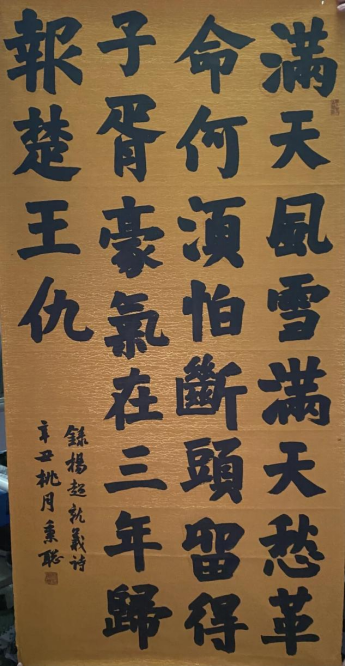 滿天風雪滿天愁革
命何須怕斷頭留得
子胥豪氣在三年歸
報楚王仇
錄楊超就義詩
辛丑桃月秉聡